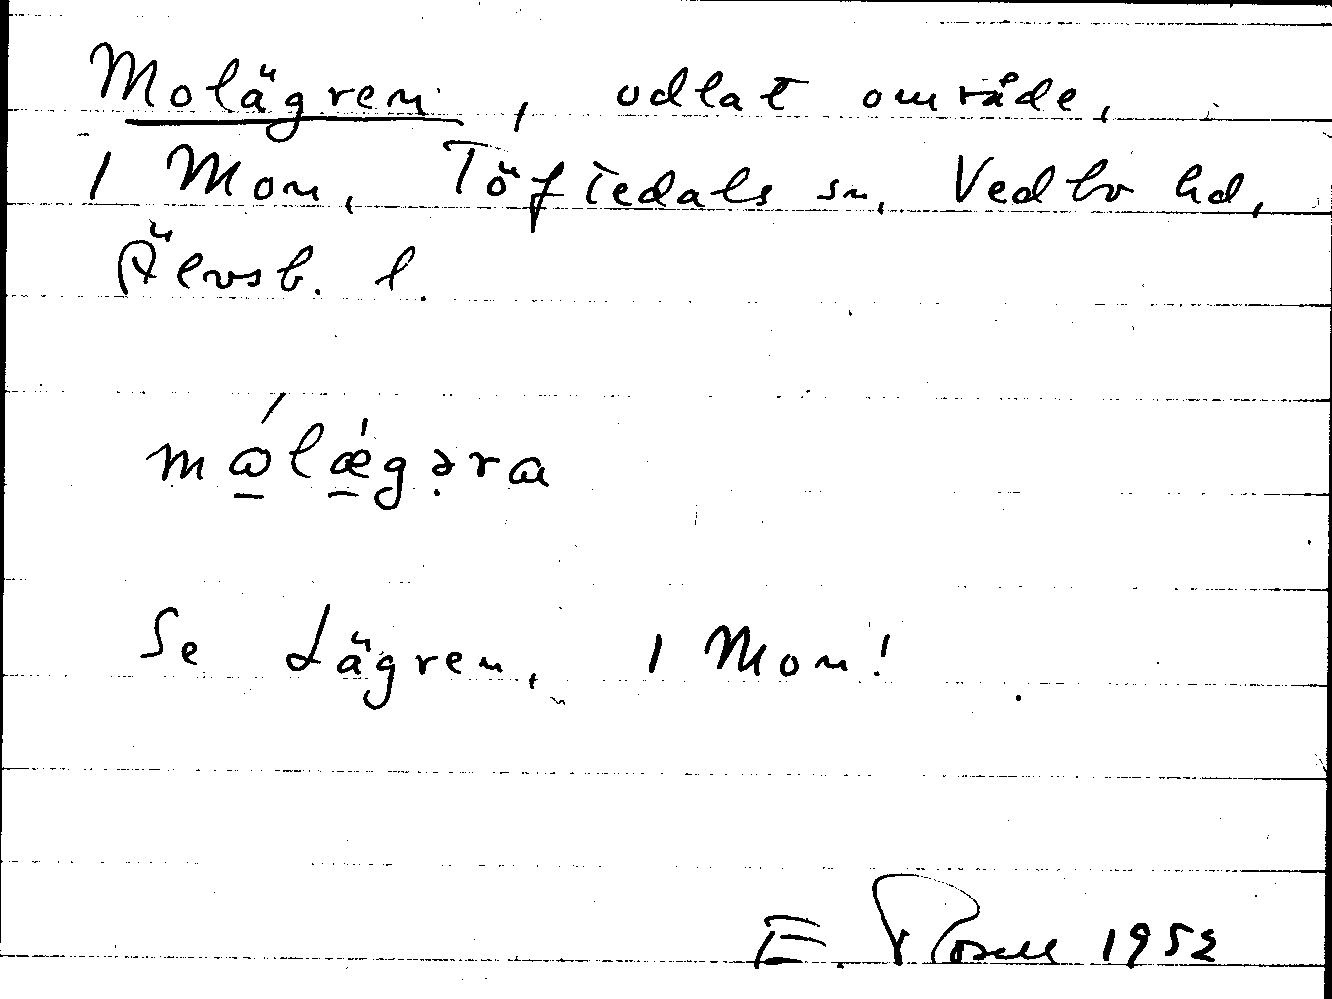 Molägren, odlat område,
1 Mon, Töftedals sn, Vedbo hd,
Älvsb. l.
mώ̲lǽ̲gə̣rα
Se Lägren, 1 Mon!
E. Rosell 1952